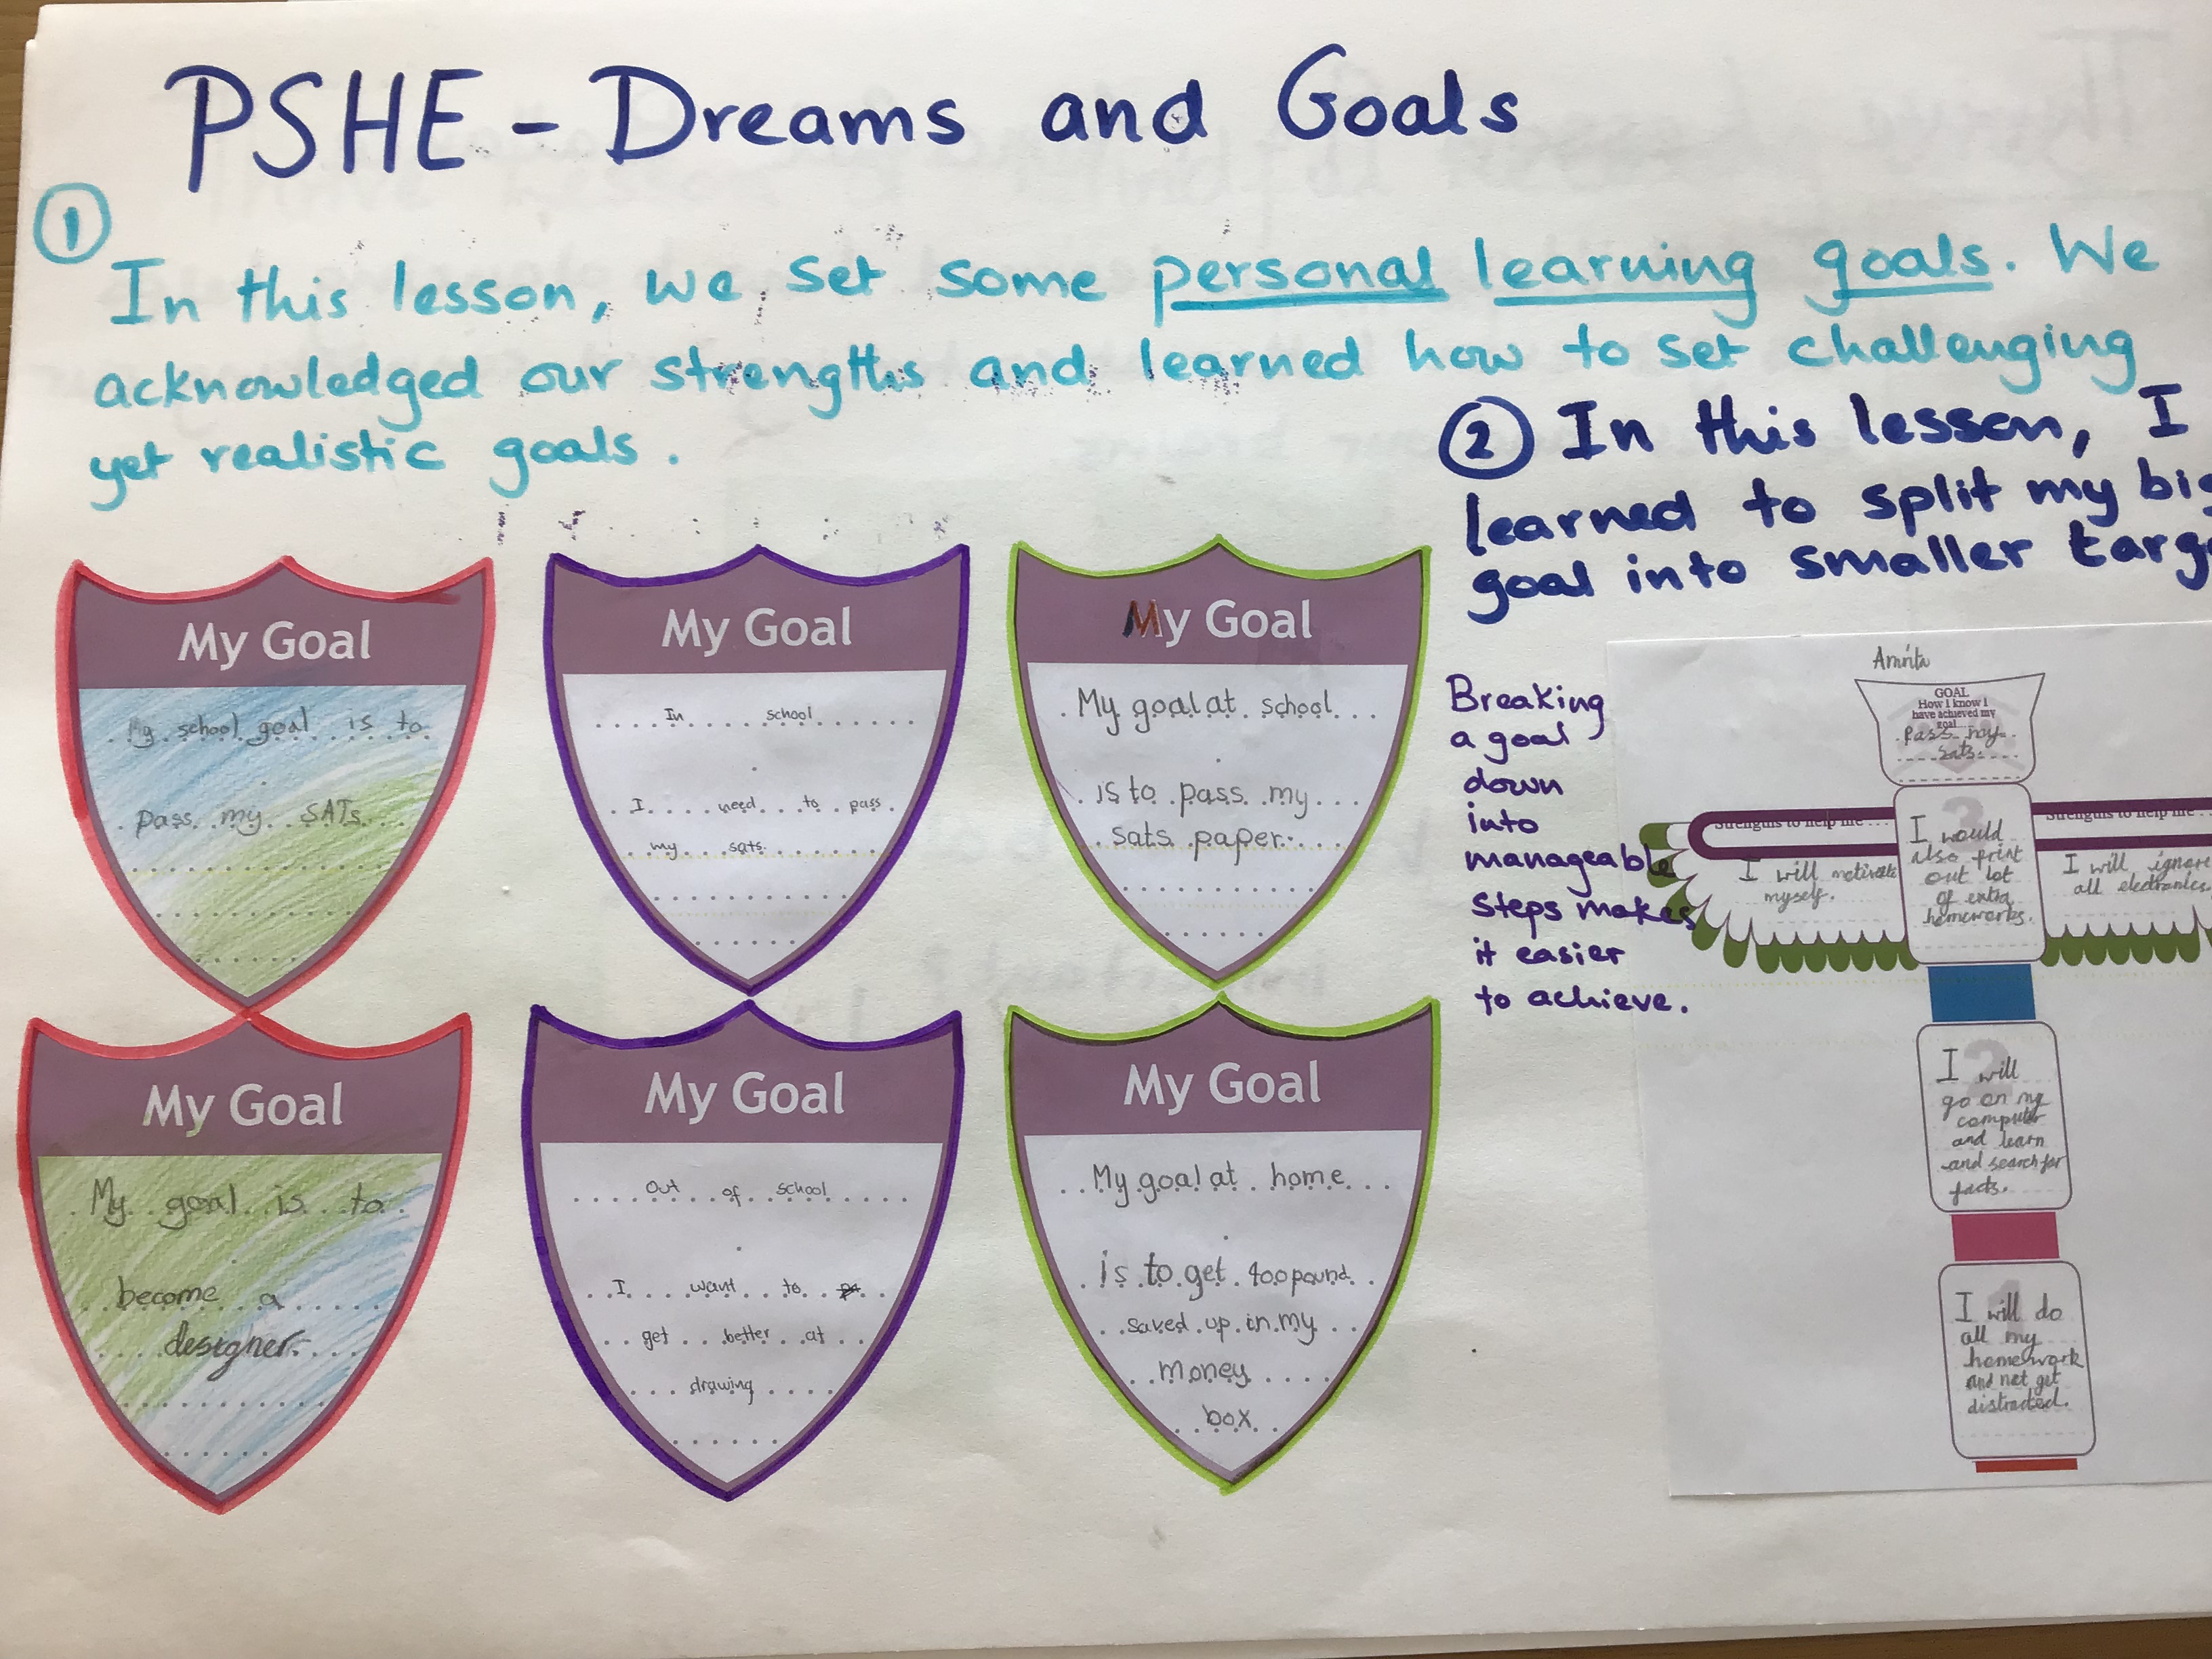 PSHE - Dreams and Goals
1
In this lesson, we set some personal learning goals. We
acknowledged our strengths and learned how to set challenging
yet realistic goals.
2 In this lesson, I
learned to split my big
goal into smaller targ
My Goal
My school goal is to
pass my SATs
My Goal
In school
I need to pass
my sats.
My Goal
My goal at school
is to pass my
sats paper.
My Goal
My goal is to
become a
designer.
My Goal
Out of school
I want to
get better at
drawing
My Goal
My goal at home
is to get 400 pound
saved up in my
money
box
Breaking
a goal
down
into
manageable
steps makes
it easier
to achieve.
Amrita
GOAL
How I know I
have achieved my
goal
Pass my
sats.
Strengths to help me
I will motivate
myself.
3
I would
also print
out lot
of extra
homeworks.
Strengths to help me
I will ignore
all electronics.
2
I will
go on my
computer
and learn
and search for
facts.
1
I will do
all my
homework
and not get
distracted.